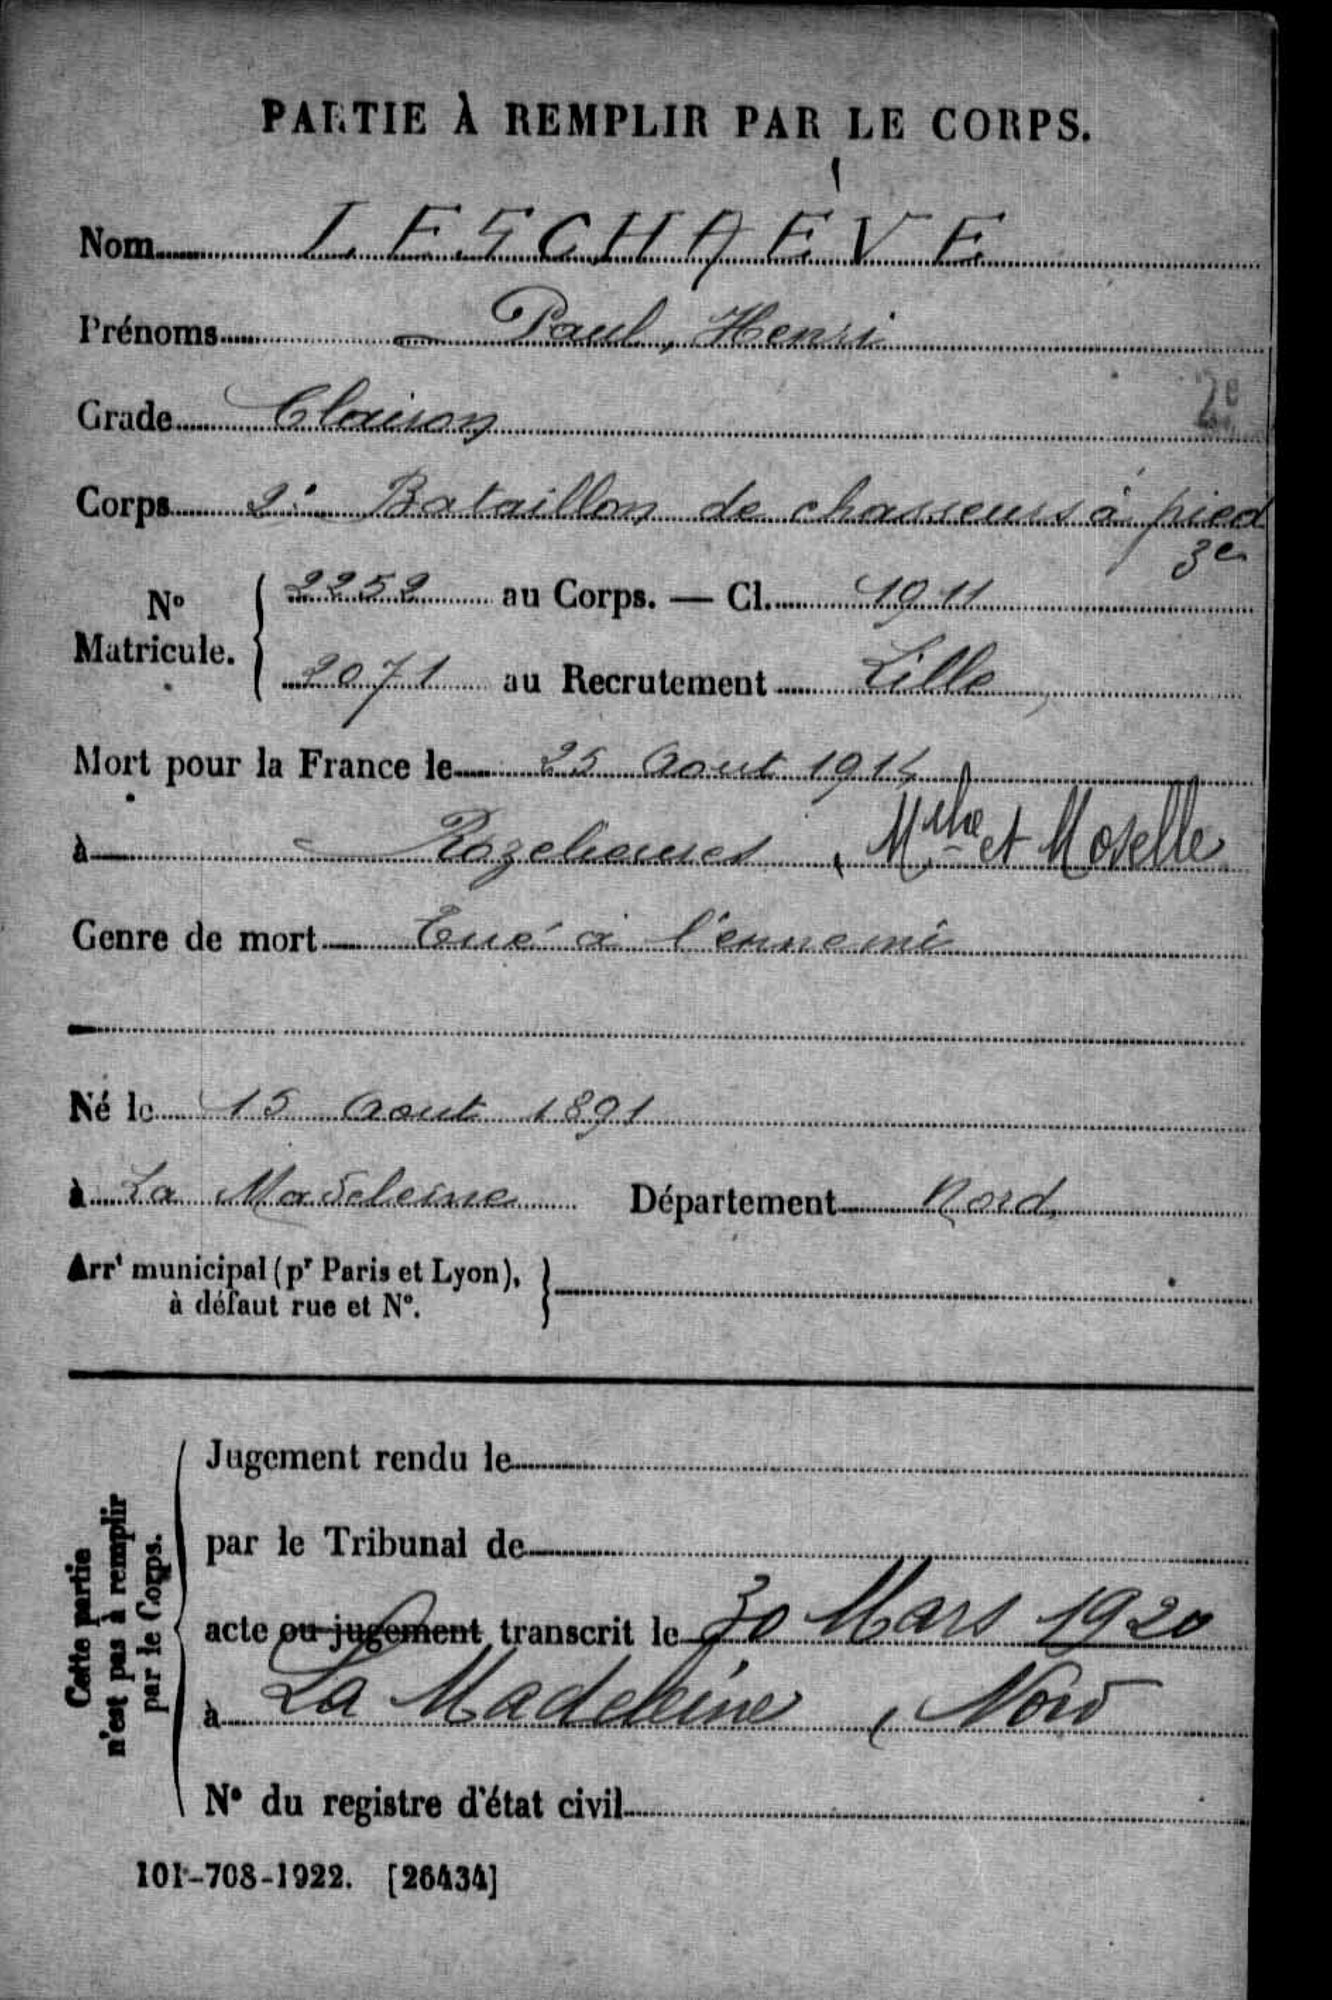 PARTIE À REMPLIR PAR LE CORPS.
Nom LESCHAÈVE
Prénoms Paul, Henri
Grade Clairon
2e
Corps 2e Bataillon de chasseurs à pied
3e
N° Matricule. { 2252 au Corps. — Cl. 1911
2071 au Recrutement Lille
Mort pour la France le 25 Aout 1914
à Rozelieures, Mrthe et Moselle
Genre de mort Tué à l'ennemi
Né le 15 Aout 1891
à La Madeleine Département Nord
Arrt municipal (pr Paris et Lyon), à défaut rue et N°. }
Cette partie n'est pas à remplir par le Corps.
Jugement rendu le
par le Tribunal de
acte ou jugement transcrit le 30 Mars 1920
à La Madeleine, Nord
N° du registre d'état civil
101-708-1922. [26434]